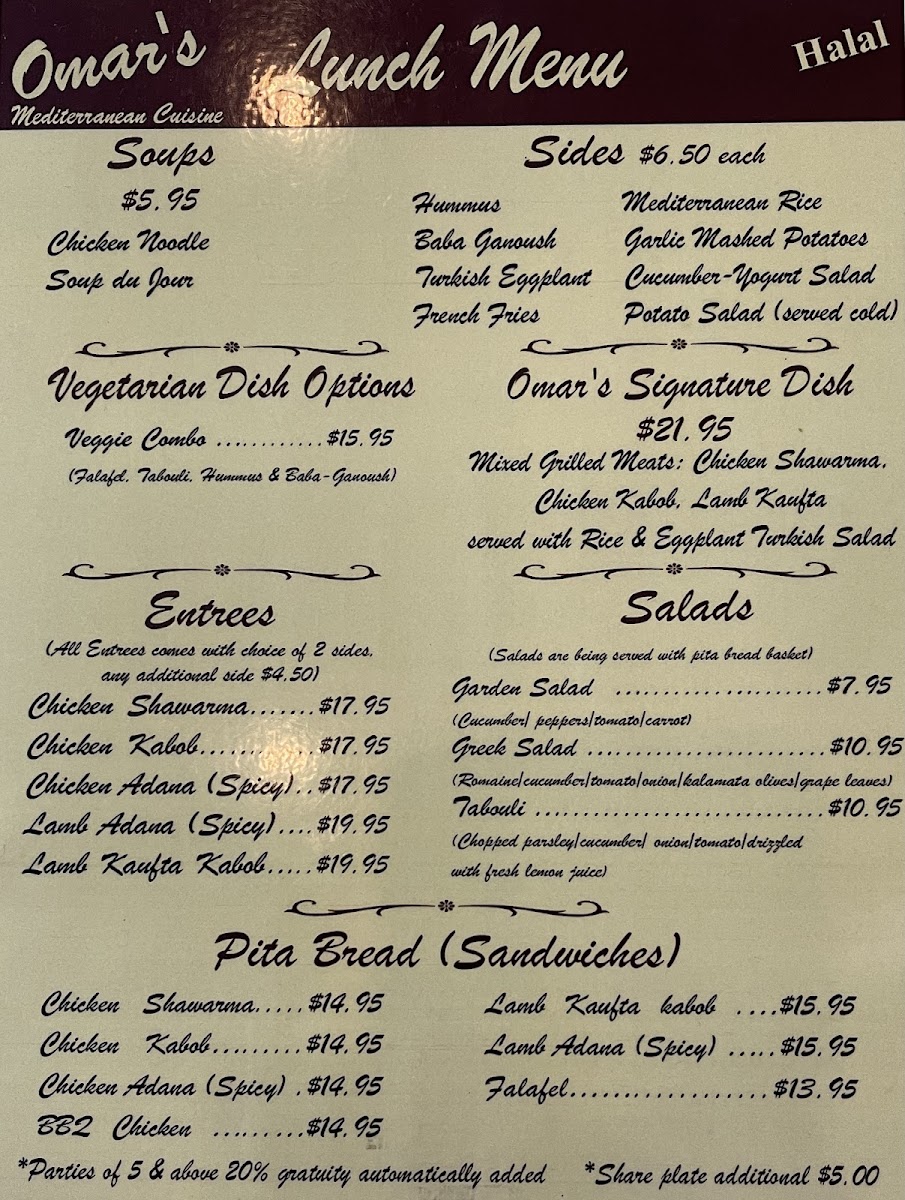 Omar's Lunch Menu Halal
Mediterranean Cuisine
Soups
$5.95
Chicken Noodle
Soup du Jour
Sides $6.50 each
Hummus
Baba Ganoush
Turkish Eggplant
French Fries
Mediterranean Rice
Garlic Mashed Potatoes
Cucumber-Yogurt Salad
Potato Salad (served cold)
Vegetarian Dish Options
Veggie Combo ............$15.95
(Falafel, Tabouli, Hummus & Baba-Ganoush)
Omar's Signature Dish
$21.95
Mixed Grilled Meats: Chicken Shawarma,
Chicken Kabob, Lamb Kaufta
served with Rice & Eggplant Turkish Salad
Entrees
(All Entrees comes with choice of 2 sides,
any additional side $4.50)
Chicken Shawarma.......$17.95
Chicken Kabob............$17.95
Chicken Adana (Spicy)..$17.95
Lamb Adana (Spicy)....$19.95
Lamb Kaufta Kabob.....$19.95
Salads
(Salads are being served with pita bread basket)
Garden Salad .....................$7.95
(Cucumber| peppers|tomato|carrot)
Greek Salad ........................$10.95
(Romaine|cucumber|tomato|onion|kalamata olives|grape leaves)
Tabouli .............................$10.95
(Chopped parsley|cucumber| onion|tomato|drizzled
with fresh lemon juice)
Pita Bread (Sandwiches)
Chicken Shawarma.....$14.95
Chicken Kabob.........$14.95
Chicken Adana (Spicy) .$14.95
BBQ Chicken .........$14.95
Lamb Kaufta kabob ....$15.95
Lamb Adana (Spicy) .....$15.95
Falafel..................$13.95
*Parties of 5 & above 20% gratuity automatically added *Share plate additional $5.00